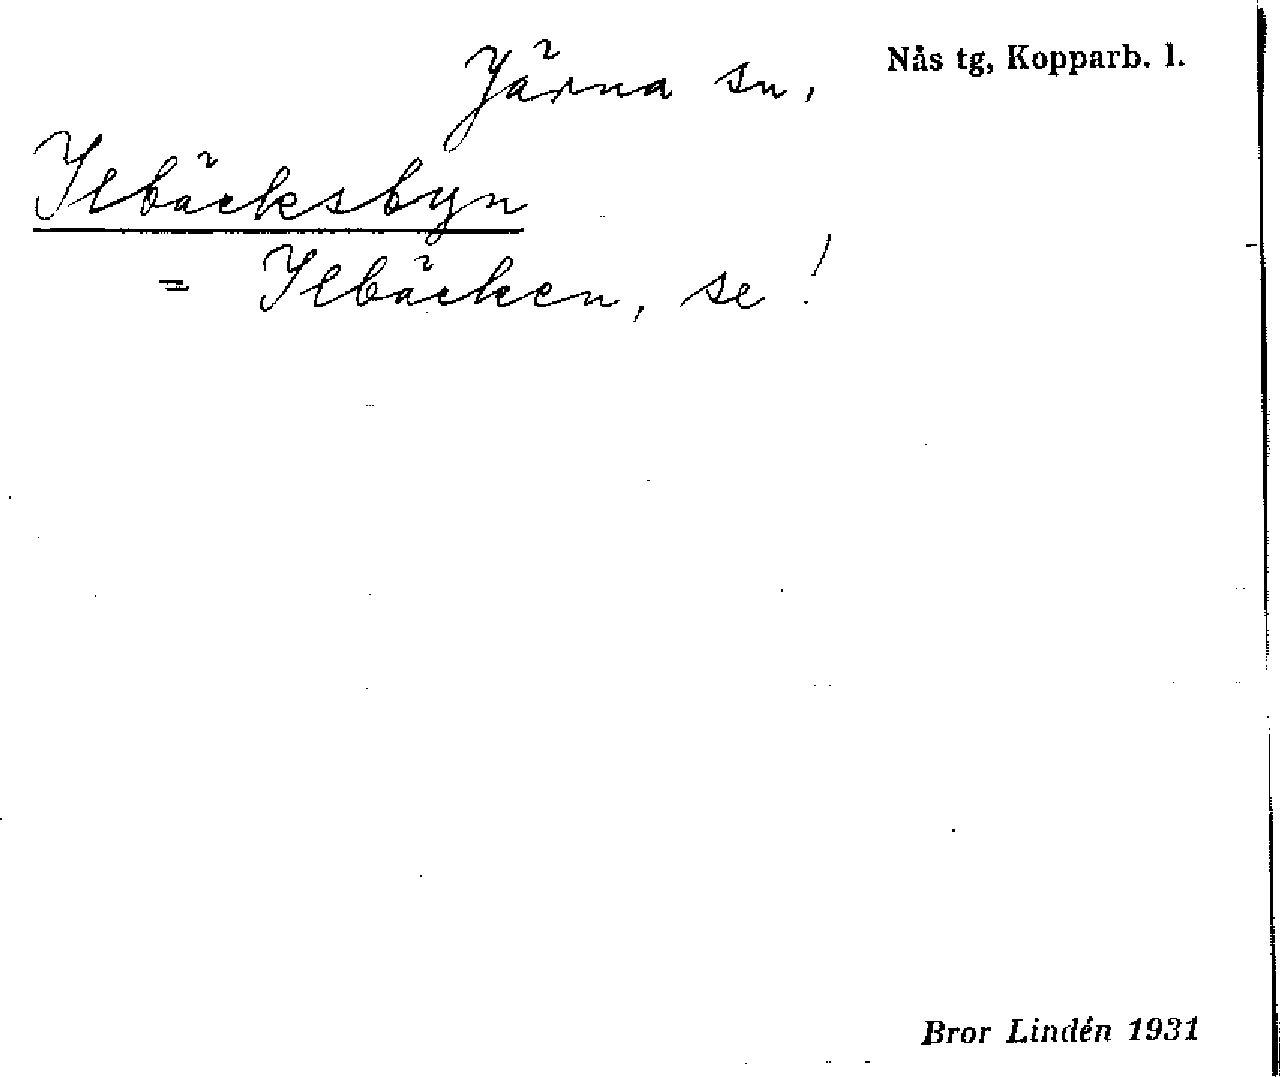 Järna sn, Nås tg, Kopparb. l.
Ilbäcksbyn
= Ilbäcken, se!
Bror Lindén 1931